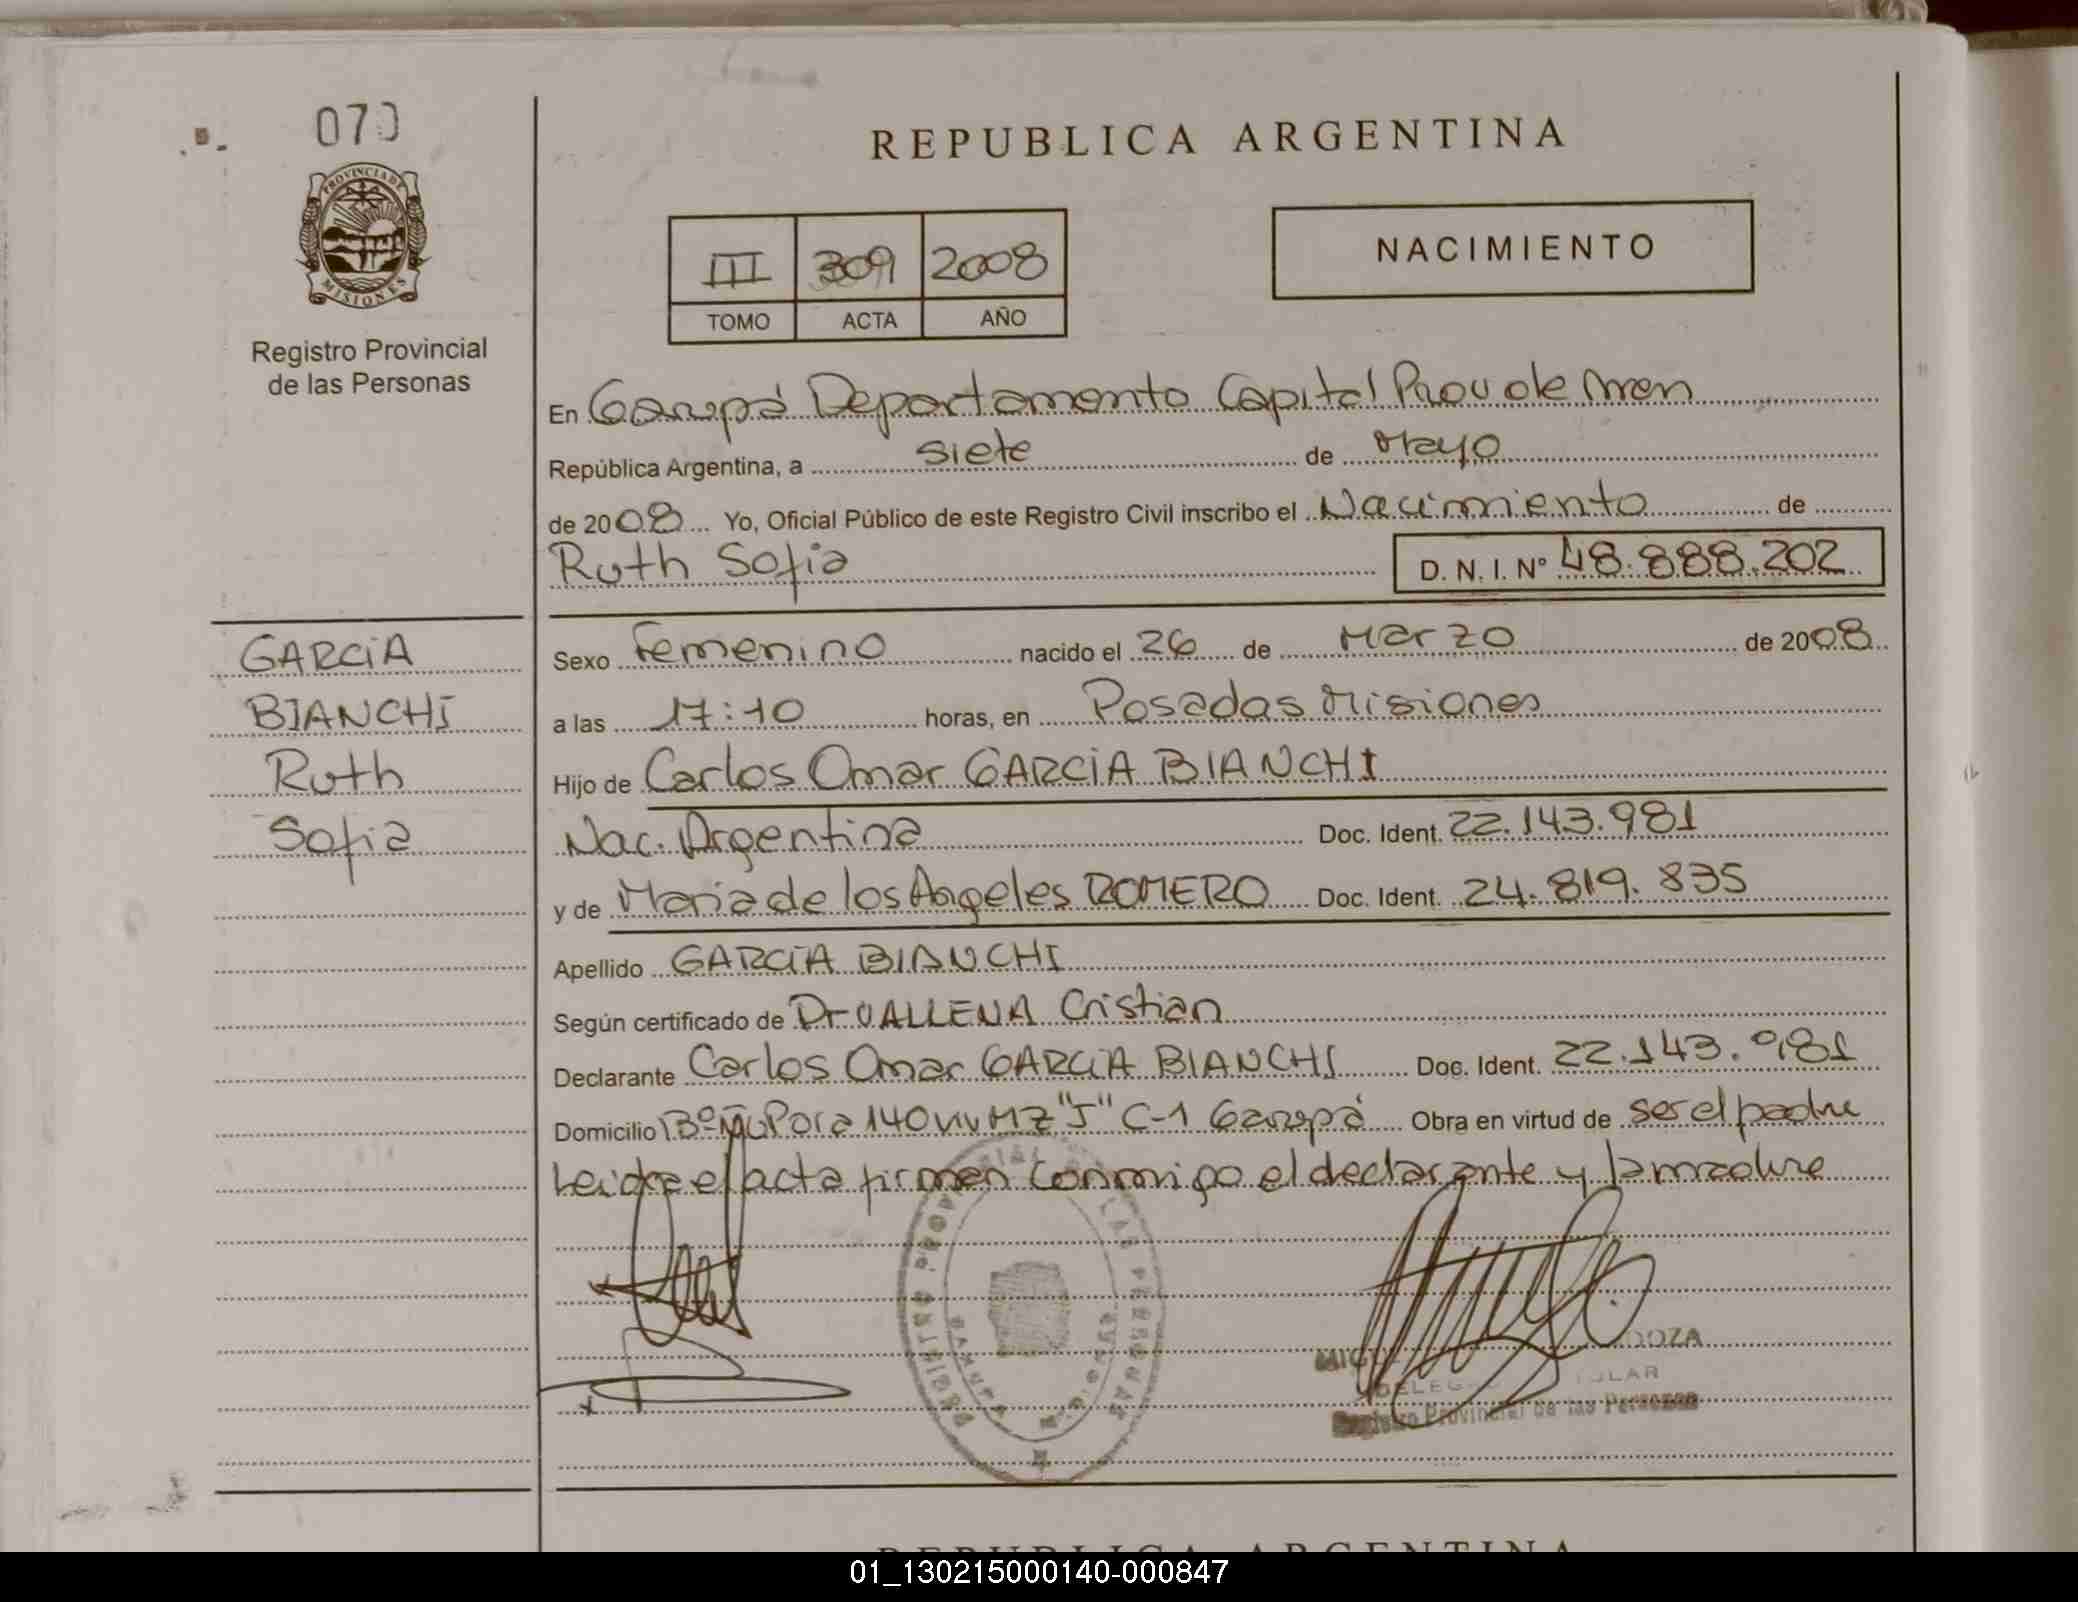 070
PROVINCIA DE
MISIONES
Registro Provincial
de las Personas
REPUBLICA ARGENTINA
III 309 2008
TOMO ACTA AÑO
NACIMIENTO
En Garupá Departamento Capital Prov de Mnes
República Argentina, a siete de Mayo
de 2008 Yo, Oficial Público de este Registro Civil inscribo el Nacimiento de
Ruth Sofia D.N.I. Nº 48.888.202
GARCIA
BIANCHI
Ruth
Sofia
Sexo Femenino nacido el 26 de Marzo de 2008
a las 17:10 horas, en Posadas Misiones
Hijo de Carlos Omar GARCIA BIANCHI
Nac. Argentina Doc. Ident. 22.143.981
y de Maria de los Angeles ROMERO Doc. Ident. 24.819.835
Apellido GARCIA BIANCHI
Según certificado de Dr VALLENA Cristian
Declarante Carlos Omar GARCIA BIANCHI Doc. Ident. 22.143.981
Domicilio Bº Ñu Pora 140 viv MZ "J" C-1 Garupá Obra en virtud de ser el padre
Leida el acta firman conmigo el declarante y la madre
DOZA
Registro Provincial de las Personas
REPUBLICA ARGENTINA
01_130215000140-000847